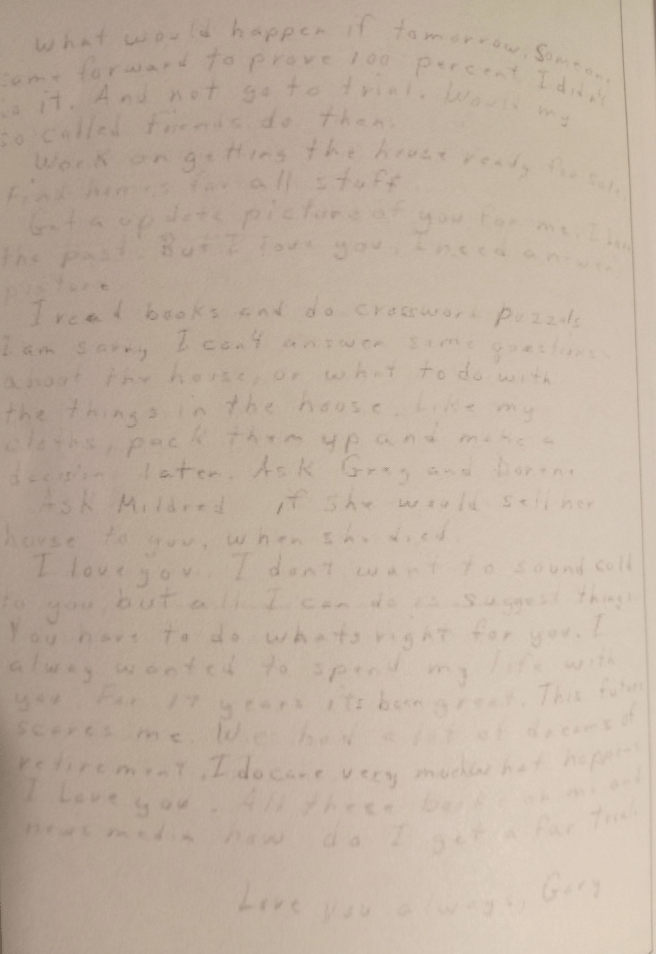 What would happen if tomorrow, someone
came forward to prove 100 percent I didn't
do it. And not go to trial. Would my
so called friends do then.
Work on getting the house ready for sale,
find homes for all stuff
Get a up date picture of you for me. I
the past. But I love you, I need a
picture
I read books and do crossword puzzels
I am sarry I can't answer some questions
about the house, or what to do with
the things in the house. Like my
cloths, pack them up and make a
decision later. Ask Greg and
Ask Mildred if she would sell her
house to you, when she died.
I love you. I don't want to sound cold
to you, but all I can do is suggest things
You have to do whats right for you. I
alway wanted to spend my life with
you. For 17 years its been great. This future
scares me. We had a lot of dreams of
retirement. I do care very much what happens
I Love you. All these books on me and
news media how do I get a far trail
Love you always, Gary